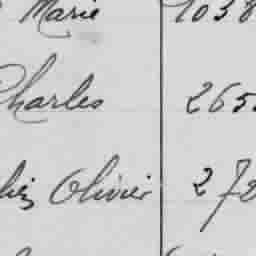 Marie 1038
Charles 265
Olivier 272